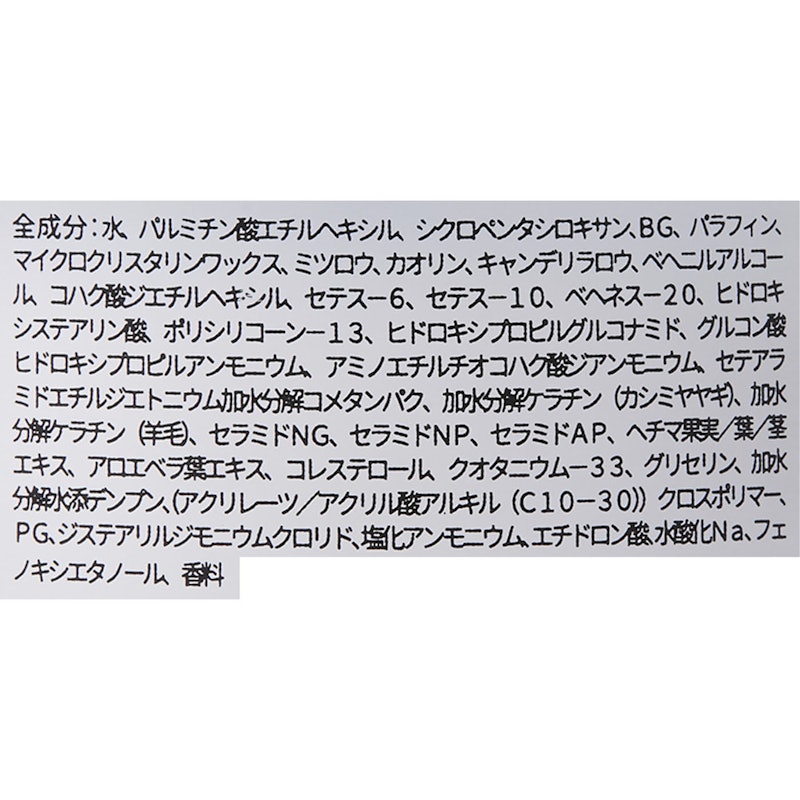 全成分：水、パルミチン酸エチルヘキシル、シクロペンタシロキサン、BG、パラフィン、
マイクロクリスタリンワックス、ミツロウ、カオリン、キャンデリラロウ、ベヘニルアルコー
ル、コハク酸ジエチルヘキシル、セテスー6、セテスー10、ベヘネスー20、ヒドロキ
システアリン酸、ポリシリコーンー13、ヒドロキシプロピルグルコナミド、グルコン酸
ヒドロキシプロピルアンモニウム、アミノエチルチオコハク酸ジアンモニウム、セテアラ
ミドエチルジエトニウム加水分解コメタンパク、加水分解ケラチン（カシミヤヤギ）、加水
分解ケラチン（羊毛）、セラミドNG、セラミドNP、セラミドAP、ヘチマ果実／葉／茎
エキス、アロエベラ葉エキス、コレステロール、クオタニウムー33、グリセリン、加水
分解水添デンプン、（アクリレーツ／アクリル酸アルキル（C10－30））クロスポリマー、
PG、ジステアリルジモニウムクロリド、塩化アンモニウム、エチドロン酸、水酸化Na、フェ
ノキシエタノール、香料